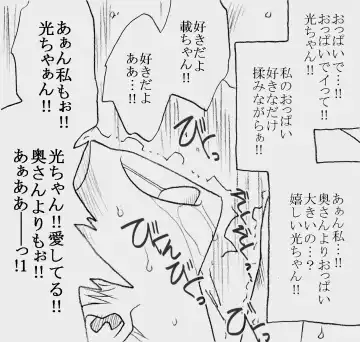 おっぱいで…!!
おっぱいでイって!!
光ちゃん!!
私のおっぱい
好きなだけ
揉みながらぁ!!
あぁん私…!!
奥さんよりおっぱい
大きいの…?
嬉しい光ちゃん!!
好きだよ
載ちゃん!!
好きだよ
ああ…!!
あぁん私もぉ!!
光ちゃぁん!!
光ちゃん!!愛してる!!
奥さんよりもぉ!!
あぁああ――っ!1